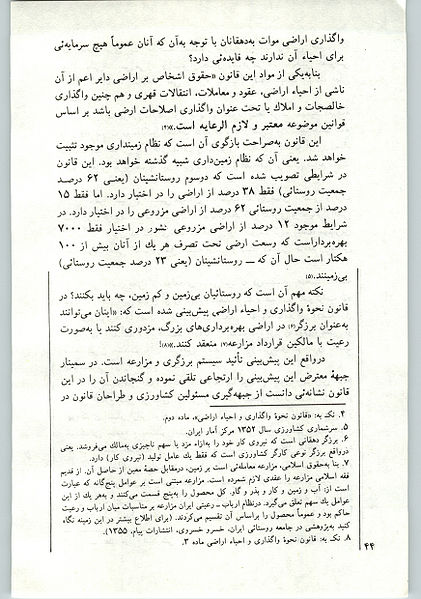 واگذاری اراضی موات به‌دهقانان با توجه به‌آن که آنان عموماً هیچ سرمایه‌ئی
برای احیاء آن ندارند چه فایده‌ئی دارد؟
بنابه‌یکی از مواد این قانون «حقوق اشخاص بر اراضی دایر اعم از آن
ناشی از احیاء اراضی، عقود و معاملات، انتقالات قهری و هم چنین واگذاری
خالصجات و املاك یا تحت عنوان واگذاری اصلاحات ارضی باشد بر اساس
قوانین موضوعه معتبر و لازم الرعایه است.»(۴)
این قانون به‌صراحت بازگوی آن است که نظام زمینداری موجود تثبیت
خواهد شد. یعنی آن که نظام زمین‌داری شبیه گذشته خواهد بود. این قانون
در شرایطی تصویب شده است که دوسوم روستانشینان (یعنی ۶۲ درصد
جمعیت روستائی) فقط ۳۸ درصد از اراضی را در اختیار دارد. اما فقط ۱۵
درصد از جمعیت روستائی ۶۲ درصد از اراضی مزروعی را در اختیار دارد. در
شرایط موجود ۱۲ درصد از اراضی مزروعی کشور در اختیار فقط ۷۰۰۰
بهره‌برداراست که وسعت ارضی تحت تصرف هر یك از آنان بیش از ۱۰۰
هکتار است حال آن که روستانشینان (یعنی ۲۳ درصد جمعیت روستائی)
بی‌زمینند.(۵)
نکته مهم آن است که روستائیان بی‌زمین و کم زمین، چه باید بکنند؟ در
قانون نحوهٔ واگذاری و احیاء اراضی پیش‌بینی شده است که: «اینان می‌توانند
به‌عنوان برزگر(۶) در اراضی بهره‌برداری‌های بزرگ، مزدوری کنند یا به‌صورت
رعیت با مالکین قرارداد مزارعه(۷) منعقد کنند.»(۸)
درواقع این پیش‌بینی تأئید سیستم برزگری و مزارعه است. در سمینار
جبههٔ معترض این پیش‌بینی را ارتجاعی تلقی نموده و گنجاندن آن را در این
قانون نشانه‌ئی دانست از جبهه‌گیری مسئولین کشاورزی و طراحان قانون در
۴. نک به: «قانون نحوهٔ واگذاری و احیاء اراضی»، ماده دوم.
۵. سرشماری کشاورزی سال ۱۳۵۲ مرکز آمار ایران.
۶. برزگر دهقانی است که نیروی کار خود را به‌ازاء مزد یا سهم ناچیزی به‌مالك می‌فروشد. یعنی
درواقع برزگر نوعی کارگر کشاورزی است که فقط یك عامل تولید (نیروی کار) دارد.
۷. بنا به‌حقوق اسلامی، مزارعه معامله‌ئی است بر زمین، درمقابل حصهٔ معین از حاصل آن. از قدیم
فقه اسلامی مزارعه را عقدی لازم شمرده است. مزارعه مبتنی است بر عوامل پنج‌گانه که عبارت
است از: آب و زمین و کار و بذر و گاو. کل محصول را به‌پنج قسمت می‌کنند و به‌هر یك از این
عوامل یك سهم تعلق می‌گیرد. درنظام ارباب ـ رعیتی ایران مزارعه بر مناسبات میان ارباب و رعیت
حاکم بود و عموماً محصول را براساس آن تقسیم می‌کردند. (برای اطلاع بیشتر در این زمینه نگاه
کنید به‌پژوهشی در جامعه روستائی ایران، خسرو خسروی، انتشارات پیام، ۱۳۵۵).
۸. نک به: قانون نحوهٔ واگذاری و احیاء اراضی ماده ۳.
۴۴